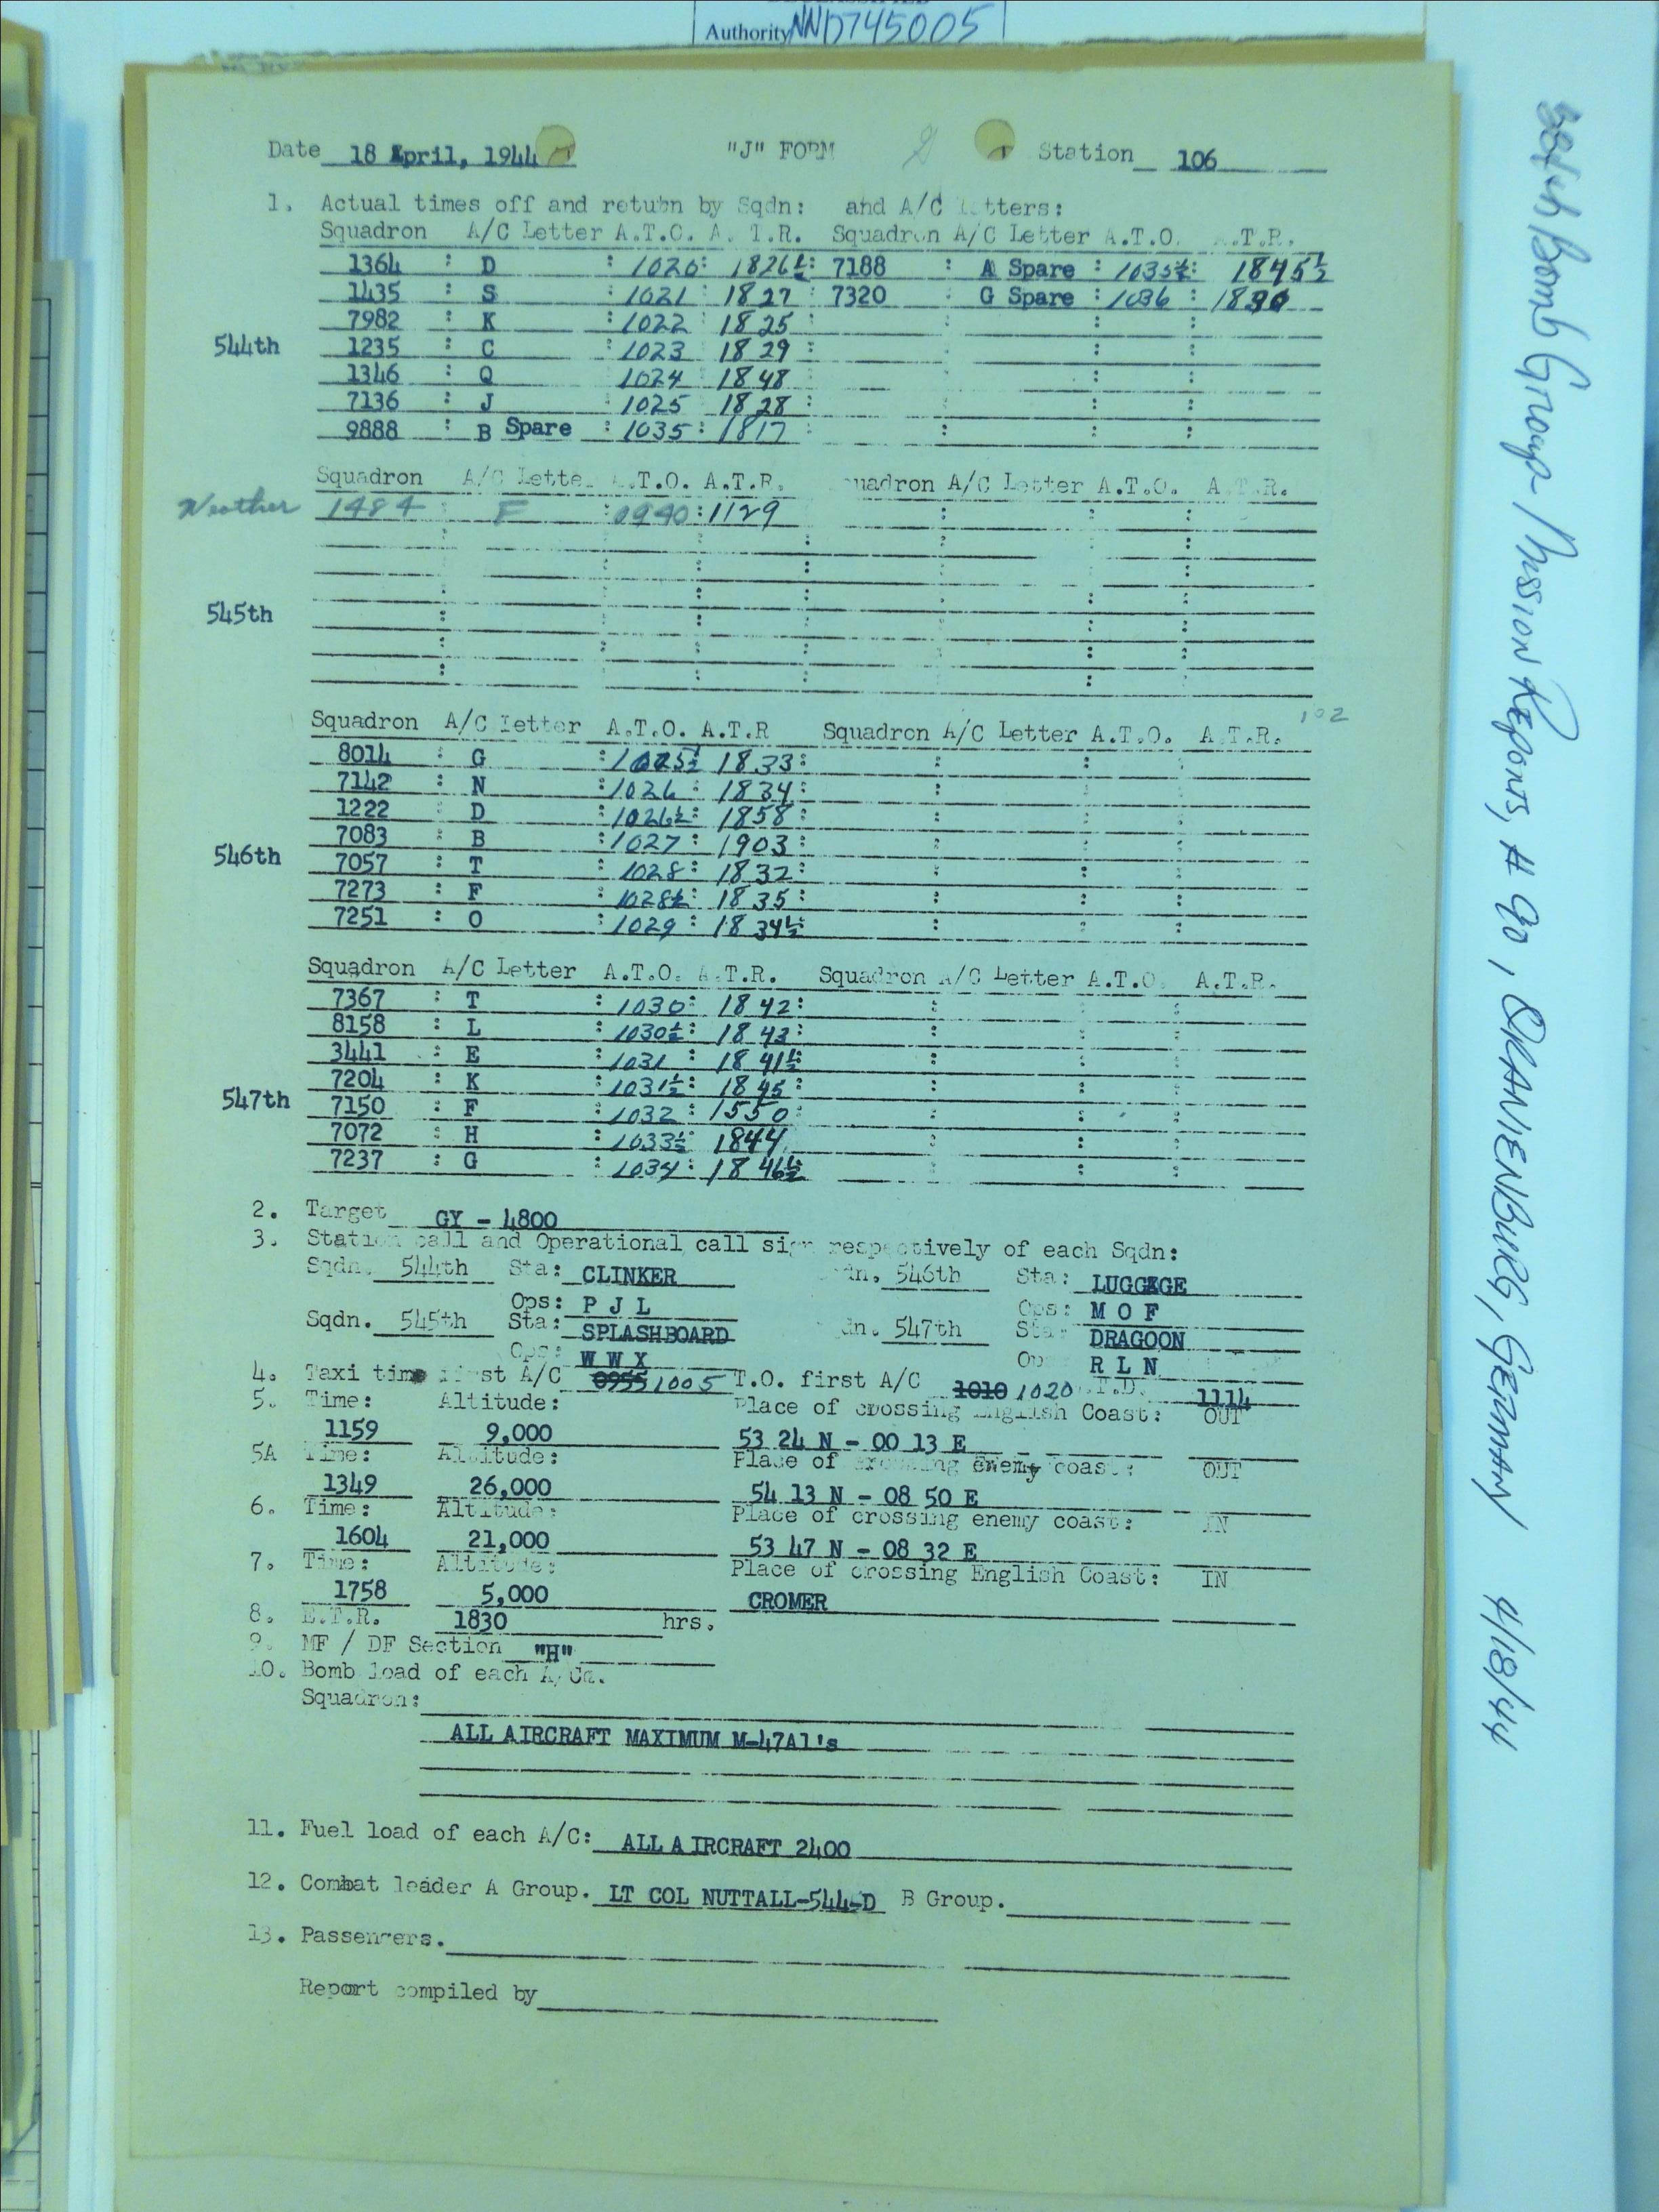 Authority NND745005
Date 18 April, 1944 "J" FORM 2 Station 106
1. Actual times off and return by Sqdn: and A/C Letters:
Squadron A/C Letter A.T.O. A.T.R. Squadron A/C Letter A.T.O. A.T.R.
1364 : D : 1020 : 1826½ : 7188 : A Spare : 1035½ : 1845½
1435 : S : 1021 : 1827 : 7320 : G Spare : 1036 : 1830
7982 : K : 1022 : 1825 :
544th 1235 : C : 1023 1829 :
1346 : Q 1024 1848
7136 : J 1025 1828 :
9888 : B Spare : 1035 : 1817
Squadron A/C Letter A.T.O. A.T.R. Squadron A/C Letter A.T.O. A.T.R.
Weather 1484 F : 0940 : 1129
545th
102
Squadron A/C Letter A.T.O. A.T.R Squadron A/C Letter A.T.O. A.T.R.
8014 : G : 1025½ 1833 :
7142 : N : 1026 : 1834 :
1222 : D : 1026½ : 1858 :
7083 : B : 1027 : 1903 :
546th 7057 : T : 1028 : 1832 :
7273 : F : 1028½ : 1835 :
7251 : O : 1029 : 1834½ :
Squadron A/C Letter A.T.O. A.T.R. Squadron A/C Letter A.T.O. A.T.R.
7367 : T : 1030 : 1842 :
8158 : L : 1030½ : 1843 :
3441 : E : 1031 : 1841½ :
7204 : K : 1031½ : 1845 :
547th 7150 : F : 1032 : 1550 :
7072 : H : 1033½ : 1844
7237 : G : 1034 : 1846½
2. Target GY - 4800
3. Station call and Operational call sign respectively of each Sqdn:
Sqdn. 544th Sta: CLINKER Sqdn. 546th Sta: LUGGAGE
Ops: P J L Ops: M O F
Sqdn. 545th Sta: SPLASHBOARD Sqdn. 547th Sta: DRAGOON
Ops: W W X Ops: R L N
4. Taxi time first A/C 0955 1005 T.O. first A/C 1010 1020 T.D. 1114
5. Time: Altitude: Place of crossing English Coast: OUT
1159 9,000 53 24 N - 00 13 E
5A Time: Altitude: Place of crossing Enemy coast: OUT
1349 26,000 54 13 N - 08 50 E
6. Time: Altitude: Place of crossing enemy coast: IN
1604 21,000 53 47 N - 08 32 E
7. Time: Altitude: Place of crossing English Coast: IN
1758 5,000 CROMER
8. E.T.R. 1830 hrs.
9. MF / DF Section "H"
10. Bomb load of each A/Cd.
Squadron:
ALL AIRCRAFT MAXIMUM M-47A1's
11. Fuel load of each A/C: ALL A IRCRAFT 2400
12. Combat leader A Group. LT COL NUTTALL-544-D B Group.
13. Passengers.
Report compiled by
384th Bomb Group Mission Reports, # 90, ORANIENBURG, GERMANY 4/18/44